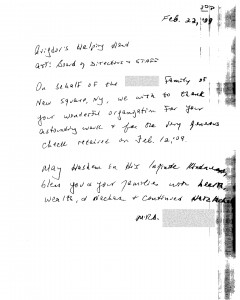 Feb. 22, '09
Avigdor's Helping Hand
Att: Board of Directors & Staff
On behalf of the Family of
New Square, NY, we wish to thank
your wonderful organization for your
astounding work & for the very generous
check received on Feb. 12, '09.
May Hashem in His infinite Kindness,
bless you & your families with health,
wealth, & Nachas & continued
MRS.